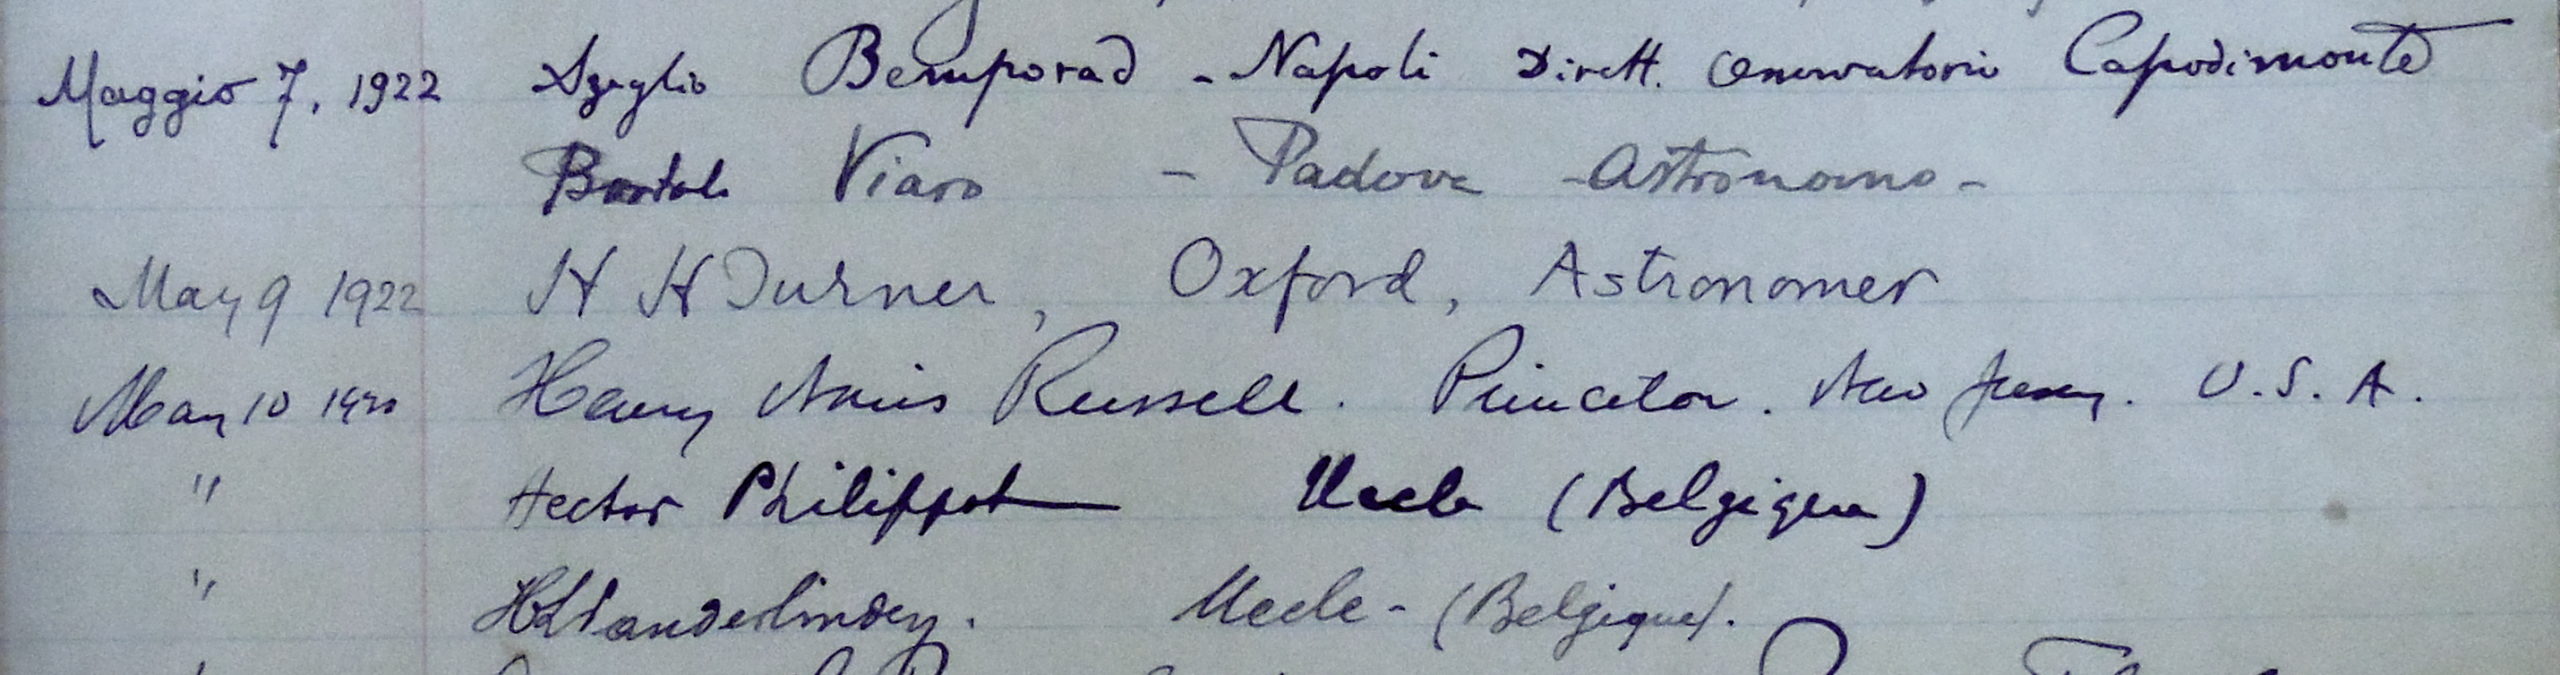 Maggio 7, 1922 Azeglio Bemporad - Napoli Dirett. Osservatorio Capodimonte
Bortolo Viaro - Padova - Astronomo -
May 9 1922 H H Turner, Oxford, Astronomer
May 10 Henry Norris Russell. Princeton. New Jersey. U.S.A.
" Hector Philippot Uccle (Belgique)
" Vanderlinden. Uccle - (Belgique).